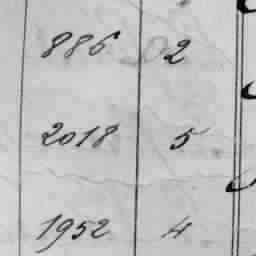 886 2
2018 5
1952 4